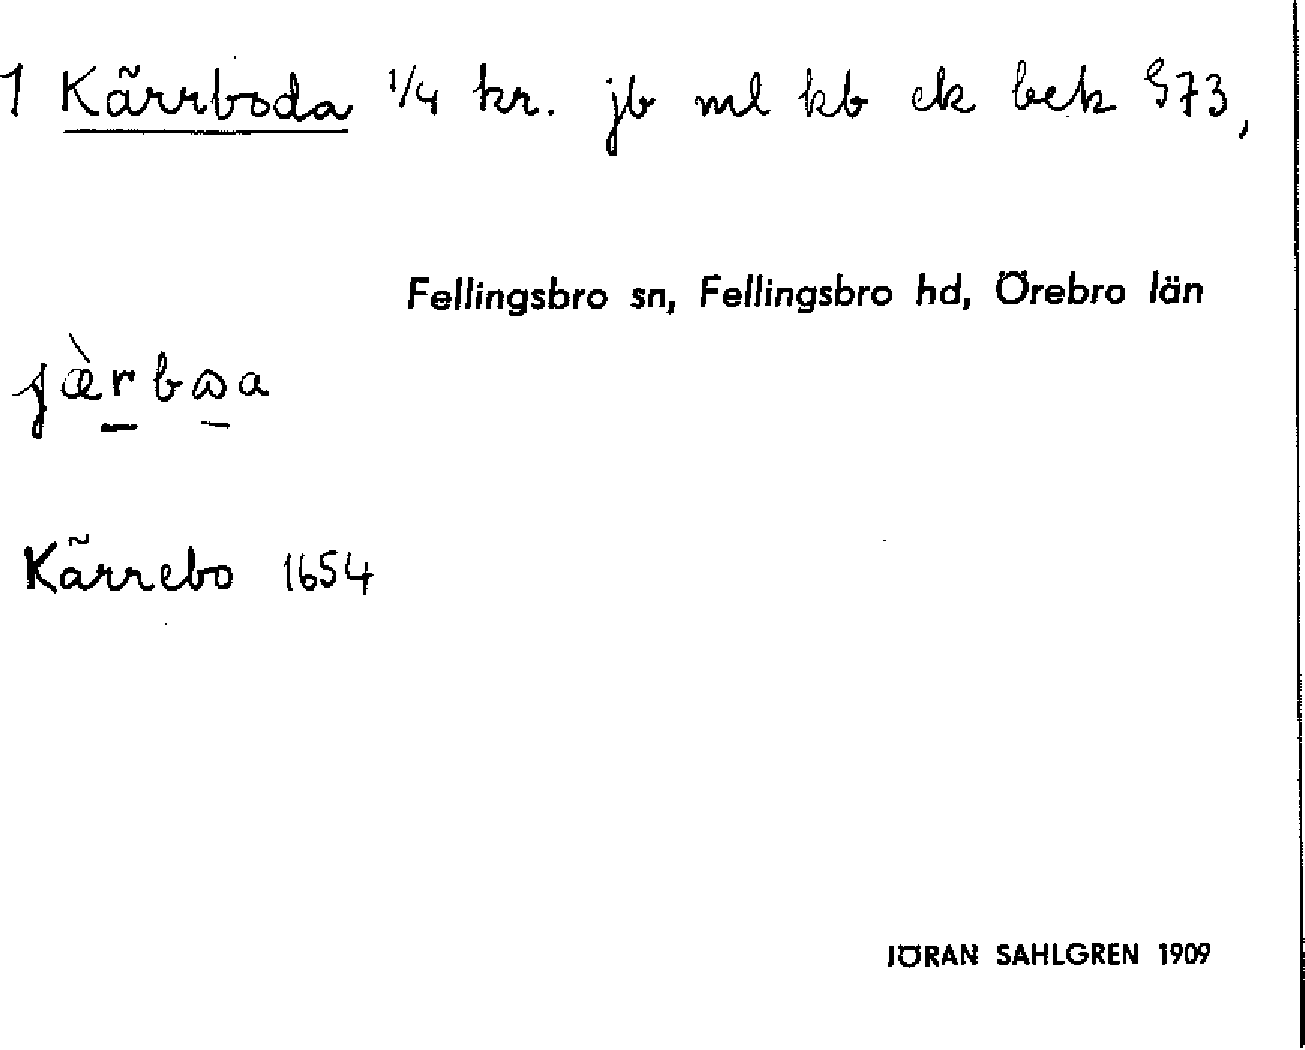 1 Kärrboda 1/4 kr. jb ml kb ek bek §73,
Fellingsbro sn, Fellingsbro hd, Örebro län
Kärrebo 1654
JÖRAN SAHLGREN 1909